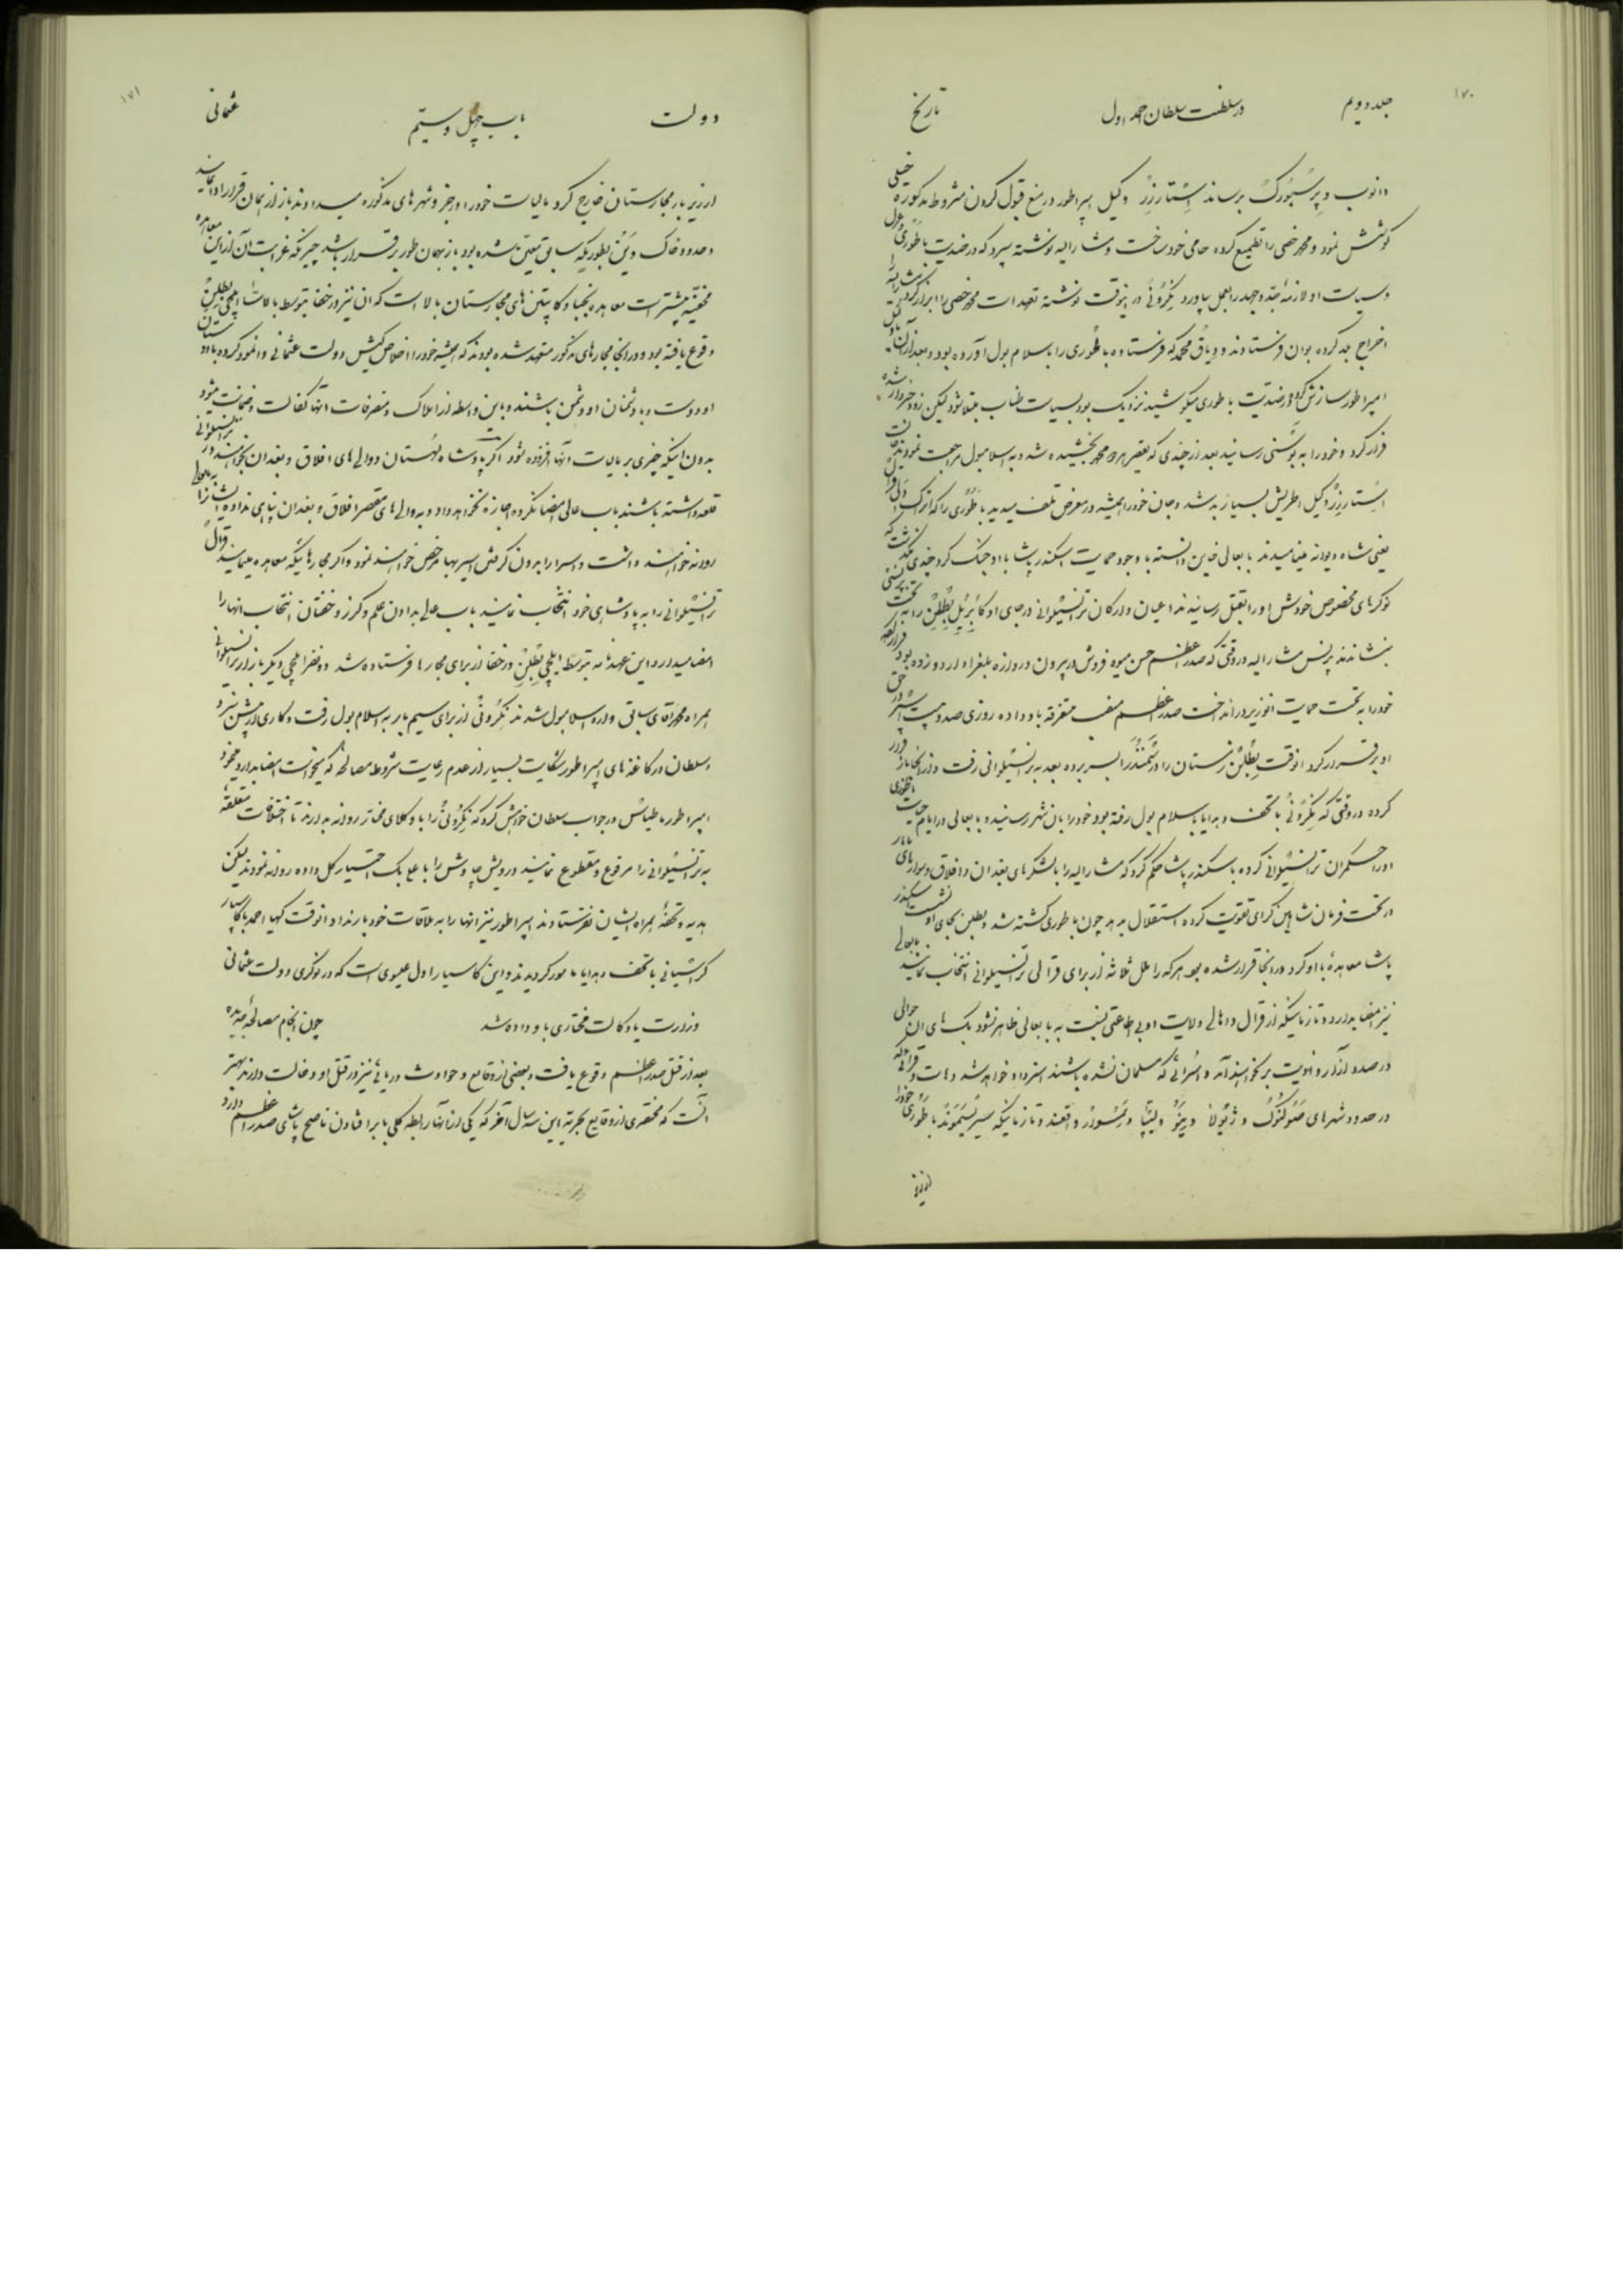 ۱۷۰
جلد دویم در سلطنت سلطان احمد اول تاریخ
دانوب و پرسبورک برساند استارزر وکیل امپراطور در منع قبول کردن شروط مذکوره خیلی
کوشش نمود و محمد خصی را تطمیع کرده حامی خود ساخت و مشارالیه نوشته سپرد که در ضدیت باطوری
و سیاست او لازمه جد و جهد را بعمل بیاورد نکرونی در اینوقت نوشته تعهدات محمد خصی را ابراز کرد
اخراج بلد کرده بوان فرستادند و دیاق محمد که فرستاده باطوری را باسلام بول آورده بود و بعد از آن با
امپراطور سازش کرده در ضدیت باطوری میکوشید نزدیک بود بسیاست طناب مبتلا شود لیکن زود خبردار شده
فرار کرد و خود را به بوسنی رسانید بعد از چندی که تقصیر هر دو محمد بخشیده شد به اسلامبول مراجعت نمودند
استارزر وکیل اطریش بسیار بد شد و جان خود را همیشه در معرض تلف میدید باطوری را که اتراک دلی قرال
یعنی شاه دیوانه مینامیدند بابعالی خاین دانسته با وجود حمایت اسکندر پاشا با او جنک کرد چندی نکذشت که
نوکرهای مخصوص خودش او را بقتل رسانیدند اعیان و ارکان ترانسیلوانی در جای او کابریل بطلن را به تخت
بنشاندند پرنس مشارالیه در وقتی که صدر اعظم حسن میوه فروش در بیرون دروازه بلغراد اردو زده بود
خود را به تحت حمایت انوزیر در انداخت صدر اعظم منصب متفرقه باو داده روزی صد و بیست اسپر در حق
او برقرار کرد انوقت بطلن زمستان را در تمندر بسر برده بعد به ترانسیلوانی رفت و از انجا باز فرار
کرده در وقتی که نکرونی با تحف و هدایا باسلام بول رفته بود خود را بان شهر رسانیده و بابعالی در ایام حیات باطوری
او را حکمران ترانسیلوانی کرده باسکندر پاشا حکم کرد که مشارالیه را با لشکرهای بغدان و افلاق و سوارهای تاتار
در تحت فرمان شاهین کرای تقویت کرده استقلال بدهد چون باطوری کشته شد و بطلن بجای او نشست اسکندر
پاشا معاهده با او کرد در انجا قرار شده بود هر که را ملل ثلاثه از برای قرالی ترانسیلوانی انتخاب نمایند بابعالی
نیز امضا بدارد و تا زمانیکه از قرال و اهالی ولایت او بی اطاعتی نسبت به بابعالی ظاهر نشود بک های ان حوالی
در صدد آزار و اذیت بر نخواهند آمد و اسرائی که مسلمان نشده باشند استرداد خواهد شد
در حدود شهرهای و و لیپا و و تا زمانیکه باطوری خود را
از زیر
۱۷۱
دولت باب چهل و ستیم عثمانی
از زیر بار مجارستان خارج کرد مالیات خود را در جزو شهرهای مذکوره میدادند باز از همان قرار ادا نمایند
و حدود خاک بطوریکه سابق معین شده بود باز بهمان طور برقرار باشد چیزیکه غرابت آن از این معاهده
مخفیه بیشتر است معاهده نجبا و کاپیتن های مجارستان بالا است که ان نیز در خفا بتوسط ایلچی بطلن
وقوع یافته بود و در انجا مجارهای مذکور متعهد شده بودند که همیشه خود را اخلاص کیش دولت عثمانی وانمود کرده با دوستان
او دوست و با دشمنان او دشمن باشند و باین واسطه از املاک و متصرفات آنها کفالت و ضمانت شود
بدون اینکه چیزی بر مالیات آنها افزوده شود اگر پادشاه لهستان و والی های افلاق و بغدان بخواهند در ترانسیلوانی
قلعه داشته باشند باب عالی امضا نکرده اجازه نخواهد داد و به والی های مقصر افلاق و بغدان پناهی نداده ایشان را به بابعالی
روانه خواهند داشت و اسرا را بدون گرفتن اسیر بها مرخص خواهند نمود و اگر مجارهائیکه معاهده مینمایند قرال
ترانسیلوانی را به پادشاهی خود انتخاب نمایند باب عالی بدادن علم و گرز و خفتان انتخاب انها را
امضا میدارد این عهدنامه بتوسط ایلچی بطلن در خفا از برای مجارها فرستاده شد دو نفر ایلچی دیگر باز از ترانسیلوانی
همراه محمد آقای سابق وارد اسلامبول شدند نکرونی از برای سیم بار به اسلام بول رفت و کاری از پیش نبرد
و سلطان در کاغذهای امپراطور شکایت بسیار از عدم رعایت شروط مصالحه که میخواست امضا بدارد مینمود
امپراطور ماطیاس در جواب سلطان خواهش کرد که نکرونی را با وکلای مختار روانه بدارند تا اختلافات متعلقه
به ترانسیلوانی را مرفوع و مقطوع نمایند درویش چاوش را با علی بک اختیار کل داده روانه نمودند لیکن
هدیه و تحفه همراه ایشان نفرستادند امپراطور نیز انها را به ملاقات خود بار نداد انوقت کهیا احمد با کاسپار
کرسیانی با تحف و هدایا مامور کردیدند و این کاسپار اول عیسوی است که در نوکری دولت عثمانی
وزارت یا وکالت مختاری باو داده شد چون انجام مصالحه جدیده
بعد از قتل صدر اعظم وقوع یافت و بعضی از وقایع و حوادث دریائی نیز در قتل او دخالت دارند بهتر
آنست که مختصری از وقایع بحریه این سه سال آخر که یکی از آنها رابطه کلی با بر افتادن ناصح پاشای صدر اعظم دارد